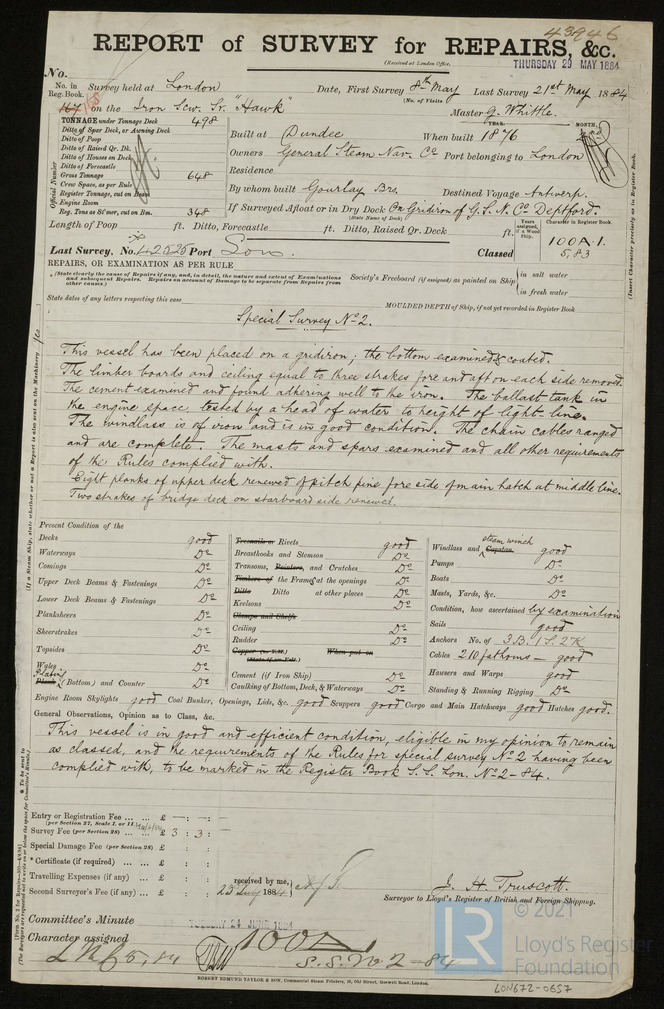 43946
REPORT of SURVEY for REPAIRS, &c.
(Received at London Office,
THURSDAY 29 MAY 1884
No.
No. in Reg. Book. Survey held at London Date, First Survey 8th May Last Survey 21st May 1884
(No. of Visits)
on the Iron Scw. Sr. "Hawk" Master G. Whittle.
TONNAGE under Tonnage Deck 498
Ditto of Spar Deck, or Awning Deck
Ditto of Poop
Ditto of Raised Qr. Dk.
Ditto of Houses on Deck
Ditto of Forecastle
Gross Tonnage 648
Crew Space, as per Rule
Register Tonnage, cut on Beam
Engine Room
Reg. Tons as St'mer, cut on Bm. 348
Official Number
YEAR. MONTH.
Built at Dundee When built 1876
Owners General Steam Nav. Co Port belonging to London
Residence
By whom built Gourlay Brs. Destined Voyage Antwerp.
If Surveyed Afloat or in Dry Dock On Gridiron of G. S. N. Co Deptford.
(State Name of Dock)
Length of Poop ft. Ditto, Forecastle ft. Ditto, Raised Qr. Deck ft.
Years assigned, if a Wood Ship.
Character in Register Book.
Last Survey, No. 42526 Port Lon. Classed 100 A.1.
5,83
(Insert Character precisely as in Register Book.
REPAIRS, OR EXAMINATION AS PER RULE
(State clearly the cause of Repairs if any, and, in detail, the nature and extent of Examinations and subsequent Repairs. Repairs on account of Damage to be separate from Repairs from other causes.)
Society's Freeboard (if assigned) as painted on Ship
in salt water
in fresh water
State dates of any letters respecting this case
MOULDED DEPTH of Ship, if not yet recorded in Register Book
Special Survey No 2.
This vessel has been placed on a gridiron; the bottom examined & coated.
The limber boards and ceiling equal to three strakes fore and aft on each side removed.
The cement examined and found adhering well to the iron. The ballast tank in
the engine space, tested by a head of water to height of light-line.
The windlass is of iron and is in good condition. The chain cables ranged
and are complete. The masts and spars examined and all other requirements
of the Rules complied with.
Eight planks of upper deck renewed of pitch pine fore side of main hatch at middle line.
Two strakes of bridge deck on starboard side renewed.
Present Condition of the
Decks good
Waterways Do
Comings Do
Upper Deck Beams & Fastenings Do
Lower Deck Beams & Fastenings Do
Planksheers Do
Sheerstrakes Do
Topsides Do
Wales Do
Plating
Plank (Bottom) and Counter Do
Treenails or Rivets good
Breasthooks and Stemson Do
Transoms, Pointers, and Crutches Do
Timbers of the Frame at the openings Do
Ditto Ditto at other places Do
Keelsons Do
Clamps and Shelfs
Ceiling Do
Rudder Do
Copper (or Y.M.) When put on
(State if on Felt.)
Cement (if Iron Ship) Do
Caulking of Bottom, Deck, & Waterways Do
steam winch
Windlass and Capstan good
Pumps Do
Boats Do
Masts, Yards, &c. Do
Condition, how ascertained by examination
Sails good
Anchors No. of 3 B. 1 S. 2 K
Cables 210 fathoms — good
Hausers and Warps good
Standing & Running Rigging Do
Engine Room Skylights good Coal Bunker, Openings, Lids, &c. good Scuppers good Cargo and Main Hatchways good Hatches good.
General Observations, Opinion as to Class, &c.
This vessel is in good and efficient condition, eligible in my opinion to remain
as classed, and the requirements of the Rules for special survey No 2 having been
complied with, to be marked in the Register Book S.S. Lon. No 2-84.
Entry or Registration Fee ... £ — : — :
(per Section 27, Scale I. or II.)
Survey Fee (per Section 28) ... £ 3 : 3 : —
Special Damage Fee (per Section 28) £ : :
* Certificate (if required) ... £ : :
Travelling Expenses (if any) ... £ : :
Second Surveyor's Fee (if any) ... £ : :
received by me,
188
J. H. Truscott.
Surveyor to Lloyd's Register of British and Foreign Shipping.
Committee's Minute TUESDAY 24 JUNE 1884
Character assigned 100 A 1.
S.S. No 2 - 84
ROBERT EDMUND TAYLOR & SON, Commercial Steam Printers, 19, Old Street, Goswell Road, London.
LR
© 2021
Lloyd's Register
Foundation
LON672-0657